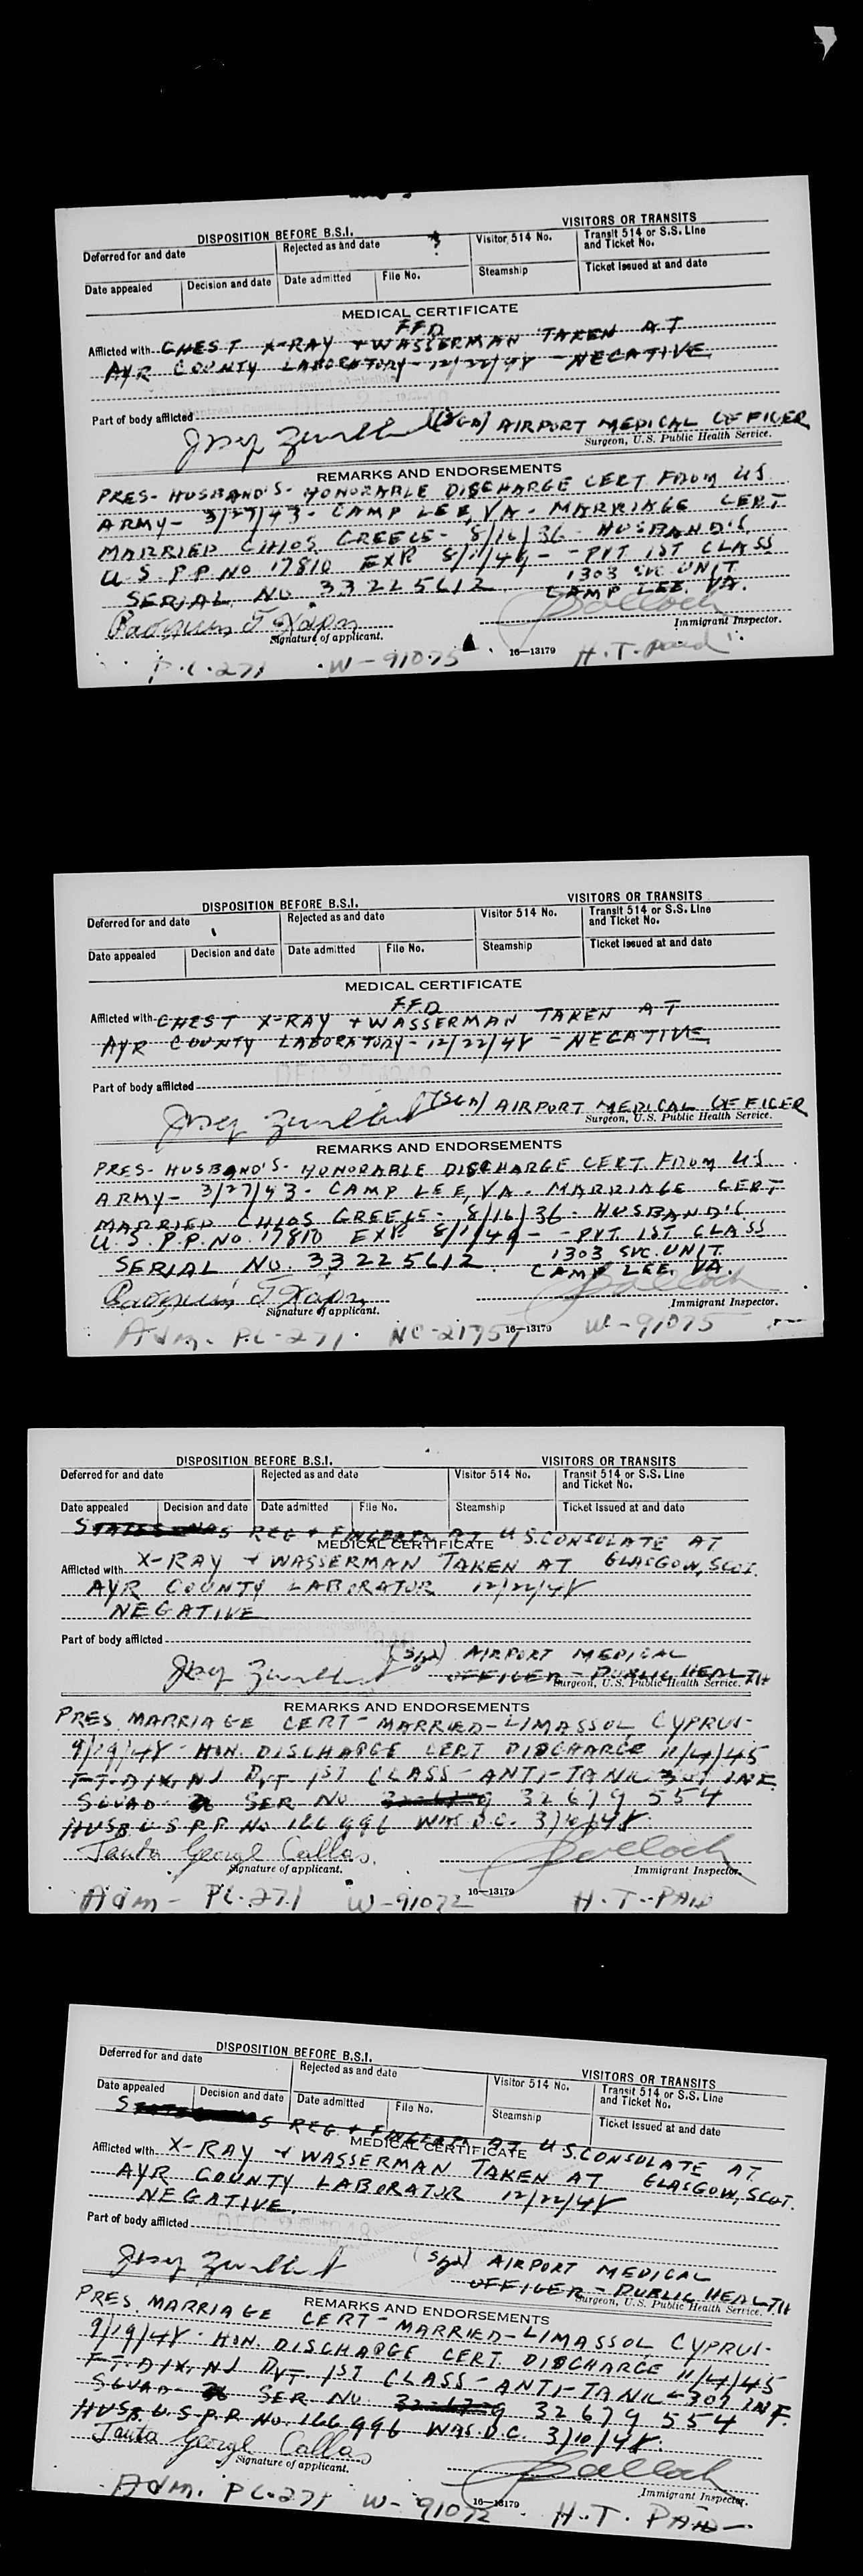 DISPOSITION BEFORE B.S.I. VISITORS OR TRANSITS
Deferred for and date Rejected as and date Visitor 514 No. Transit 514 or S.S. Line and Ticket No.
Date appealed Decision and date Date admitted File No. Steamship Ticket issued at and date
MEDICAL CERTIFICATE
FFD
Afflicted with CHEST X-RAY + WASSERMAN TAKEN AT
AYR COUNTY LABORATORY - 12/22/48 - NEGATIVE
Part of body afflicted
(SGD) AIRPORT MEDICAL OFFICER
Surgeon, U.S. Public Health Service.
REMARKS AND ENDORSEMENTS
PRES - HUSBAND'S - HONORABLE DISCHARGE CERT FROM US
ARMY - 3/27/43 - CAMP LEE, VA - MARRIAGE CERT
MARRIED CHIOS GREECE - 8/16/36 - HUSBAND'S
U.S. P.P. NO 17810 EXP 8/1/49 - - PVT 1ST CLASS
SERIAL NO 33225612 1303 SVC UNIT
CAMP LEE, VA.
Signature of applicant. Immigrant Inspector.
P.L. 271 W-91075 16—13179 H.T. paid
DISPOSITION BEFORE B.S.I. VISITORS OR TRANSITS
Deferred for and date Rejected as and date Visitor 514 No. Transit 514 or S.S. Line and Ticket No.
Date appealed Decision and date Date admitted File No. Steamship Ticket issued at and date
MEDICAL CERTIFICATE
FFD
Afflicted with CHEST X-RAY + WASSERMAN TAKEN AT
AYR COUNTY LABORATORY - 12/22/48 - NEGATIVE
Part of body afflicted
(SGD) AIRPORT MEDICAL OFFICER
Surgeon, U.S. Public Health Service.
REMARKS AND ENDORSEMENTS
PRES - HUSBAND'S - HONORABLE DISCHARGE CERT FROM US
ARMY - 3/27/43 - CAMP LEE, VA - MARRIAGE CERT
MARRIED CHIOS GREECE - 8/16/36 - HUSBAND'S
U.S. P.P. NO. 17810 EXP 8/1/49 - - PVT 1ST CLASS
SERIAL NO. 33225612. 1303 SVC. UNIT
CAMP LEE, VA.
Signature of applicant. Immigrant Inspector.
Adm. P.L-271. NC-21757 16—13179 W-91075
DISPOSITION BEFORE B.S.I. VISITORS OR TRANSITS
Deferred for and date Rejected as and date Visitor 514 No. Transit 514 or S.S. Line and Ticket No.
Date appealed Decision and date Date admitted File No. Steamship Ticket issued at and date
REG + FINGERPR AT U.S. CONSULATE AT
MEDICAL CERTIFICATE
Afflicted with X-RAY + WASSERMAN TAKEN AT GLASGOW, SCOT.
AYR COUNTY LABORATOR 12/22/48
NEGATIVE
Part of body afflicted
(Sgd) AIRPORT MEDICAL
OFFICER - PUBLIC HEALTH
Surgeon, U.S. Public Health Service.
REMARKS AND ENDORSEMENTS
PRES. MARRIAGE CERT - MARRIED - LIMASSOL CYPRUS -
9/19/48 - HON. DISCHARGE CERT DISCHARGE 11/4/45
FT. DIX, NJ PVT 1ST CLASS - ANTI-TANK 307 INF.
SQUAD SER NO. 32679554
HUSB U.S P.P. No 166996 WAS D.C. 3/10/48.
George Callas
Signature of applicant. Immigrant Inspector.
Adm - PL-271 W-91072 16—13179 H.T. - PAID
DISPOSITION BEFORE B.S.I. VISITORS OR TRANSITS
Deferred for and date Rejected as and date Visitor 514 No. Transit 514 or S.S. Line and Ticket No.
Date appealed Decision and date Date admitted File No. Steamship Ticket issued at and date
REG. + FINGERPR AT U.S. CONSULATE AT
MEDICAL CERTIFICATE
Afflicted with X-RAY + WASSERMAN TAKEN AT GLASGOW, SCOT.
AYR COUNTY LABORATOR 12/22/48
NEGATIVE.
Part of body afflicted
(Sgd) AIRPORT MEDICAL
OFFICER - PUBLIC HEALTH
Surgeon, U.S. Public Health Service.
REMARKS AND ENDORSEMENTS
PRES. MARRIAGE CERT - MARRIED - LIMASSOL CYPRUS -
9/19/48 - HON. DISCHARGE CERT. DISCHARGE 11/4/45
FT. DIX, NJ PVT 1ST CLASS - ANTI-TANK - 307 INF.
SQUAD SER NO. 32679554
HUSB. U.S. P.P. No. 166996 WAS. D.C. 3/10/48.
George Callas
Signature of applicant. Immigrant Inspector.
Adm. PL-271 W-91072 16—13179 H.T. PAID